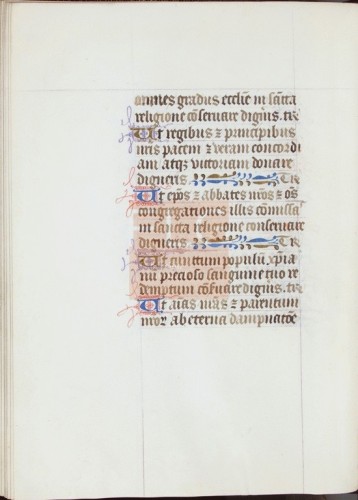 omnes gradus ecclie in sancta
religione cōseruare digñis. te r̄
Ut regibus ⁊ principibus
nris pacem ⁊ veram concordi
am atqȝ victoriam donare
digneris Te R̄
Ut ep̄os ⁊ abbates nr̄os ⁊ om̄s
congregationes illis cōmissas
in sancta religione conseruare
digneris Te R̄
Ut cunctum populū xp̄ia
nū precioso sanguine tuo re
demptum cōseruare digñis. te r̄
Ut aīas nr̄as ⁊ parentum
nror̄ ab eterna dampnatōe